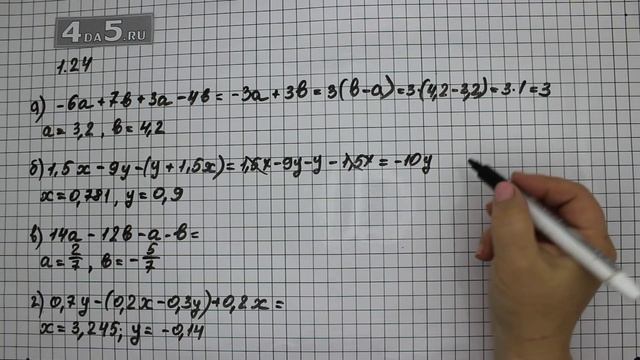 4DA5.RU
1.24
а) -6a+7b+3a-4b=-3a+3b=3(b-a)=3·(4,2-3,2)=3·1=3
a=3,2, b=4,2
б) 1,5x-9y-(y+1,5x)=1,5x-9y-y-1,5x=-10y
x=0,781, y=0,9
в) 14a-12b-a-b=
a=2/7, b=-5/7
г) 0,7y-(0,2x-0,3y)+0,2x=
x=3,245; y=-0,14